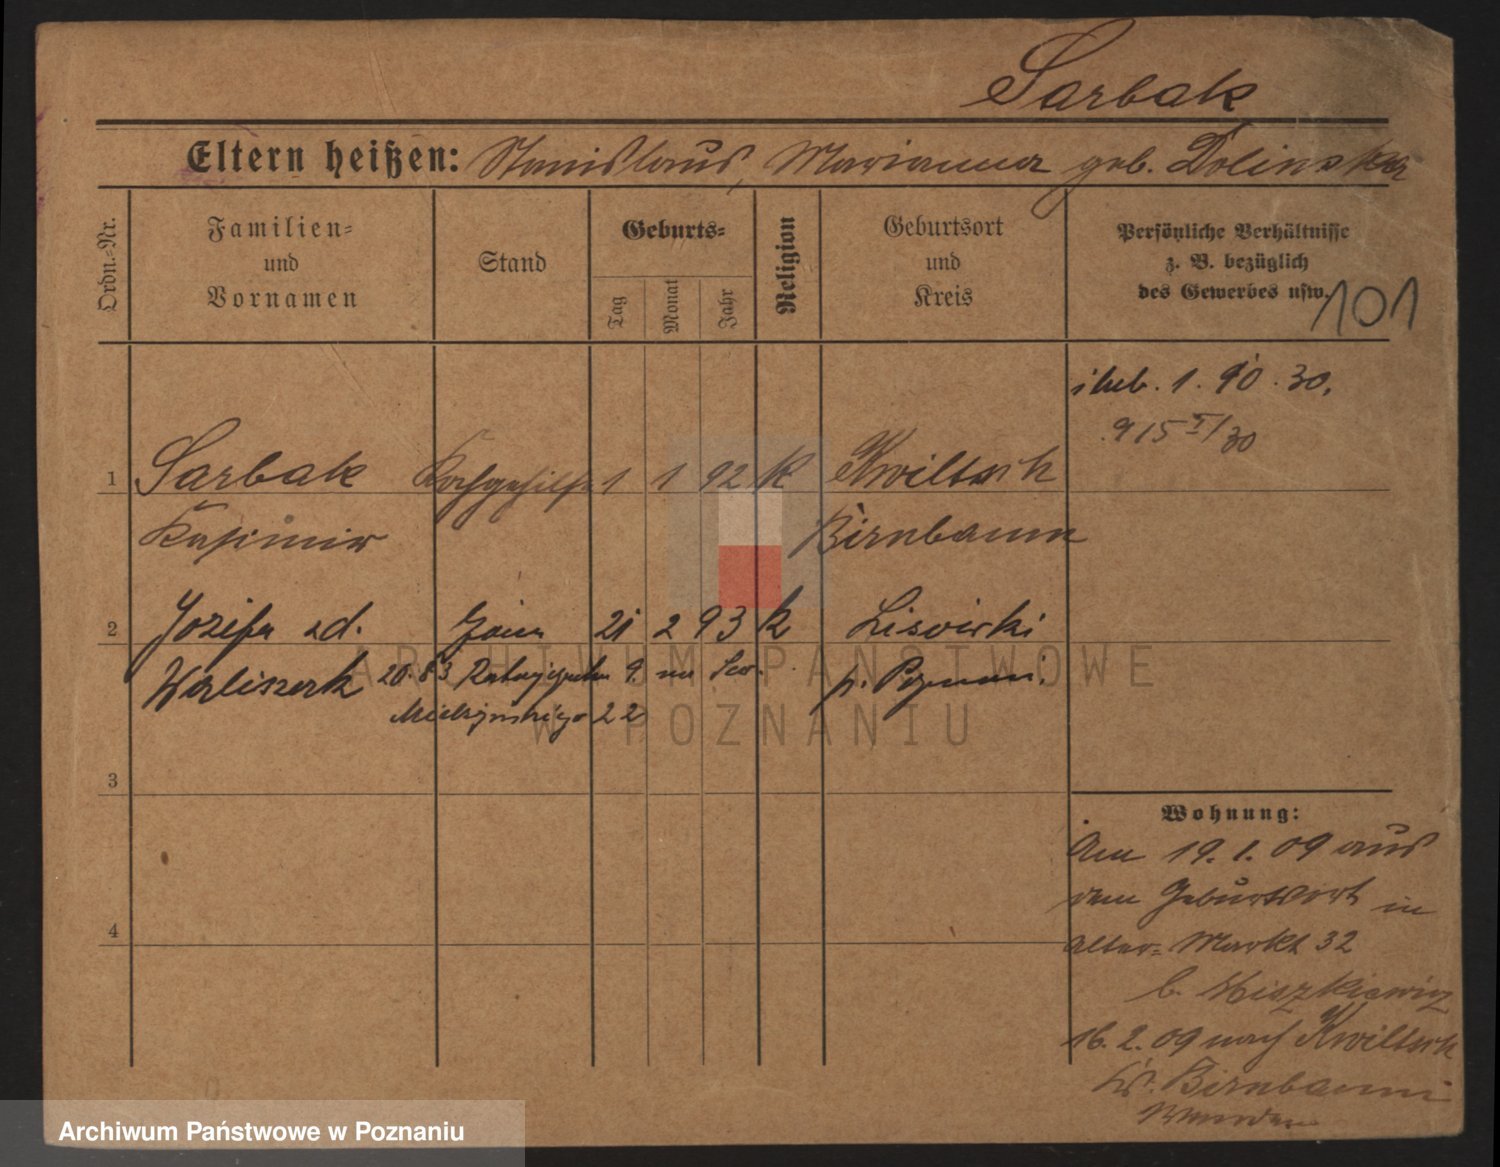 Sarbak
Eltern heißen: Stanislaus, Marianna geb. Dolinska
Ordn.-Nr.
Familien-
und
Vornamen
Stand
Geburts-
Tag
Monat
Jahr
Religion
Geburtsort
und
Kreis
Persönliche Verhältnisse
z. B. bezüglich
des Gewerbes usw.
101
1. 10. 30.
915 /30
1 Sarbak Kochgehilfe 1 1 92 K Kwiltsch
Kasimir Birnbaum
2 Jozefa zd. żona 21 2 93 k Lisówki
Waliszak 20. 8 3. Ratajczaka 9. p. Poznań.
Mielżyńskiego 22
3
4
Wohnung:
Am 19. 1. 09 aus
dem Geburtsort in
Alter- Markt 32
b.
16. 2. 09 nach Kwiltsch
Kr. Birnbaum
ARCHIWUM PAŃSTWOWE
W POZNANIU
Archiwum Państwowe w Poznaniu